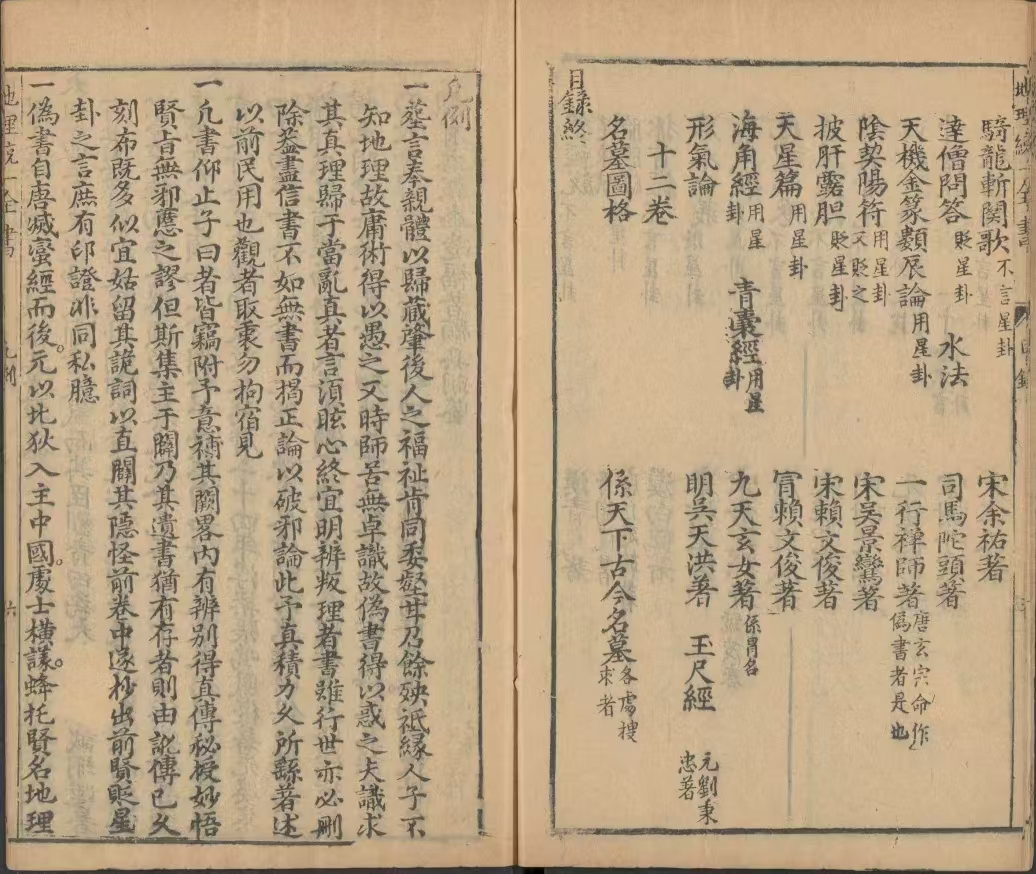 騎龍斬関歌不言星卦 宋余祐著
達僧問答貶星卦 水法 司馬陀頭著
天機金篆顥辰論用星卦 一行禅師著唐玄宗命作偽書者是也
陰契陽符用星卦又貶之 宋吳景鸞著
披肝露胆貶星卦 宋賴文俊著
天星篇用星卦 冐賴文俊著
海角經用星卦 青囊經用星卦 九天玄女著係冐名
形氣論 明吳天洪著 玉尺經元劉秉忠著
十二卷
名墓圖格 係天下古今名墓各處搜求者
目錄終
凢例
一塟言奉親體以歸藏肇後人之福祉肯同委壑甘乃餘殃祗緣人子不
知地理故庸術得以愚之又時師苦無卓識故偽書得以惑之夫識求
其真理歸于當亂真者言湏眩心終宜明辨叛理者書雖行世亦必刪
除葢盡信書不如無書而揭正論以破邪論此予真積力久所繇著述
以前民用也觀者取衷勿拘宿見
一凢書仰止子曰者皆竊附予意補其闕畧内有辨别得真傳秘授妙悟
賢旨無邪慝之謬但斯集主于闢乃其遺書猶有存者則由訛傳已久
刻布既多似宜姑留其詭詞以直闢其隱怪前卷中遂抄出前賢貶星
卦之言庶有印證非同私臆
一偽書自唐滅蠻經而後元以北狄入主中國處士橫議蜂托賢名地理
地理統一全書 凢例 六